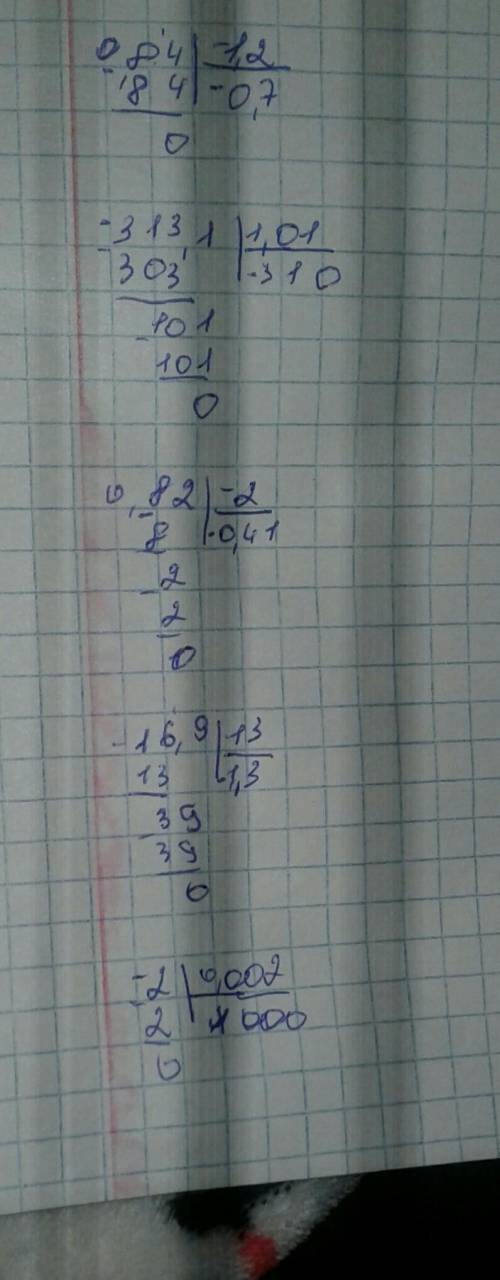 0,84 | -1,2
- 84 | -0,7
0
-313,1 | 1,01
303 | -310
-101
101
0
0,82 | -2
- 8 | -0,41
-2
2
0
-16,9 | 13
13 | 1,3
-39
39
0
-2 | 0,002
2 | 1000
0